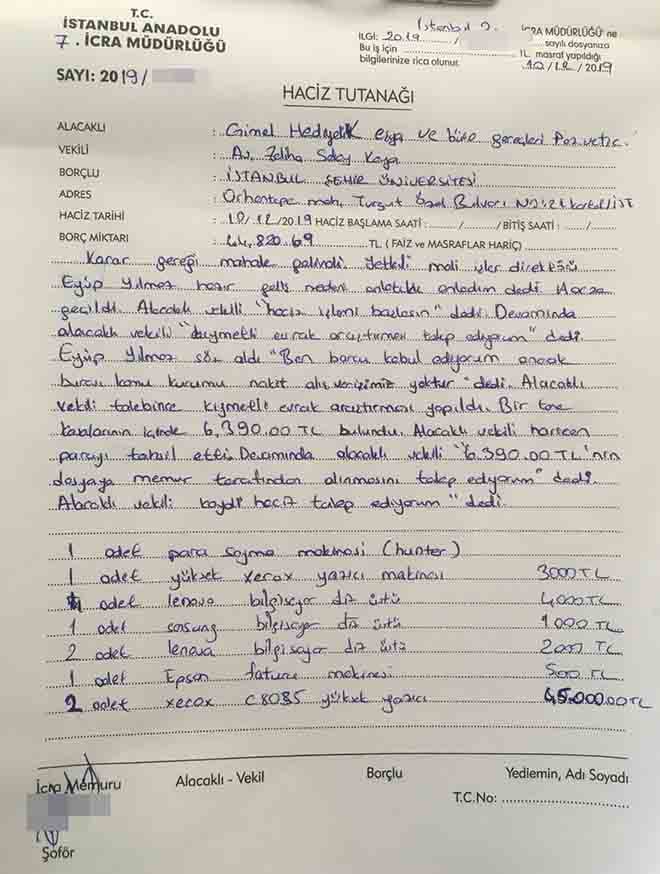 T.C.
İSTANBUL ANADOLU
7. İCRA MÜDÜRLÜĞÜ
SAYI: 2019/
İstanbul 2. İCRA MÜDÜRLÜĞÜ'ne
İLGİ: 2019/ sayılı dosyanıza
Bu iş için TL masraf yapıldığı
bilgilerinize rica olunur. 10/12/2019
HACİZ TUTANAĞI
ALACAKLI : Gimel Hediyelik eşya ve büro gereçleri Paz ve tic.
VEKİLİ : Av. Zeliha Kaya
BORÇLU : İSTANBUL ŞEHİR ÜNİVERSİTESİ
ADRES : Orhantepe mah. Turgut Özal Bulvarı NO:21 Kartal/İST
HACİZ TARİHİ : 10/12/2019 HACİZ BAŞLAMA SAATİ : / / BİTİŞ SAATİ : / /
BORÇ MİKTARI : 44,820.69 TL (FAİZ ve MASRAFLAR HARİÇ)
Karar gereği mahale gelindi. Yetkili mali işler direktörü
Eyüp Yılmaz hazır geliş nedeni anlatıldı anladım dedi Hacze
geçildi. Alacaklı vekili "haciz işlemi başlasın" dedi. Devamında
alacaklı vekili "kıymetli evrak araştırması talep ediyorum" dedi.
Eyüp Yılmaz söz aldı "Ben borcu kabul ediyorum ancak
burası kamu kurumu nakit alış verişimiz yoktur" dedi. Alacaklı
vekili talebince kıymetli evrak araştırması yapıldı. Bir tane
kasalarının içinde 6,390.00 TL bulundu. Alacaklı vekili haricen
parayı tahsil etti. Devamında alacaklı vekili "6.390.00 TL'nin
dosyaya memur tarafından alınmasını talep ediyorum" dedi.
Alacaklı vekili kaydi haciz talep ediyorum" dedi.
1 adet para sayma makinası (hunter)
1 adet yüksek xerox yazıcı makinası 3000 TL
4 adet lenova bilgisayar diz üstü 4000 TL
1 adet sansung bilgisayar diz üstü 1000 TL
2 adet lenova bilgisayar diz üstü 2000 TL
1 adet Epson fatura makinesi 500 TL
2 adet xerox C8035 yüksek yazıcı 45.000.00 TL
İcra Memuru Alacaklı - Vekil Borçlu Yediemin, Adı Soyadı
T.C.No:
Şoför